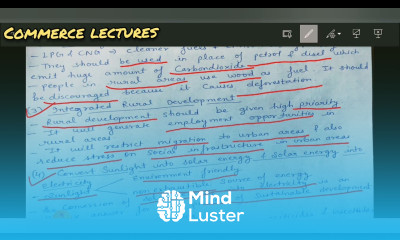 COMMERCE LECTURES
- LPG & CNG → cleaner fuels
- They should be used in place of petrol & disel which
emit huge amount of Carbondioxide.
- People in rural areas use wood as fuel. It should
be discouraged because it causes deforestation
(3) Integrated Rural Development
- Rural development should be given high priority
- It will generate employment opportunities in
rural areas
- It will restrict migration to urban areas & also
reduce stress on social infrastructure in urban areas
(4) Convert Sunlight into solar energy & solar energy into
Electricity
Sunlight Environment friendly
source of energy
Conversion of into Electricity is an
of Sustainable development
Mind
Luster